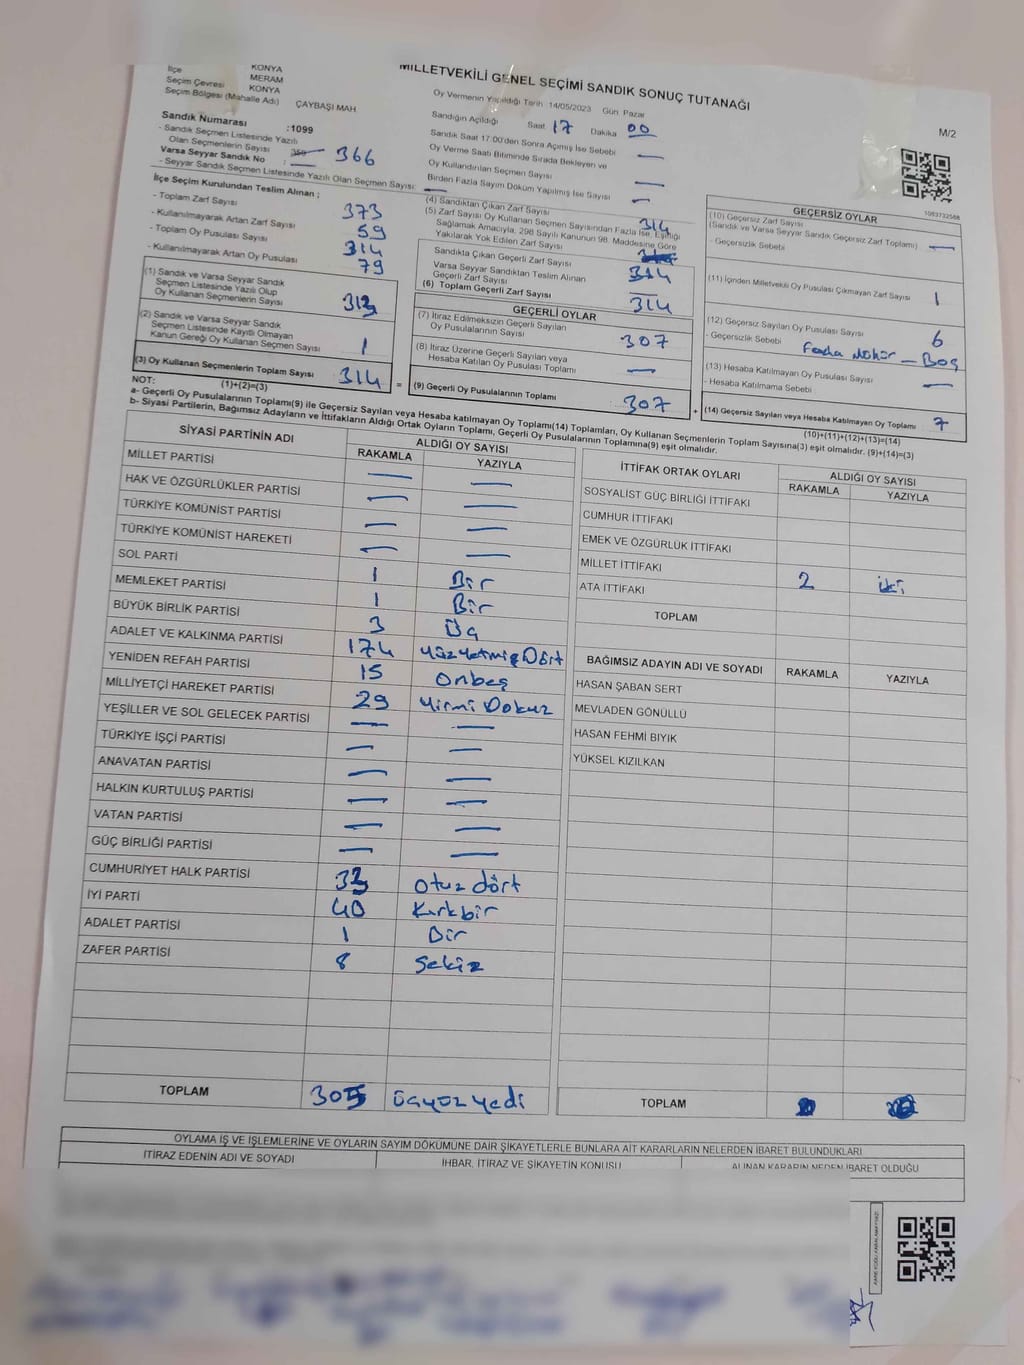 MİLLETVEKİLİ GENEL SEÇİMİ SANDIK SONUÇ TUTANAĞI
M/2
İlçe KONYA
MERAM
Seçim Çevresi KONYA
Seçim Bölgesi (Mahalle Adı) ÇAYBAŞI MAH.
Sandık Numarası :1099
- Sandık Seçmen Listesinde Yazılı
Olan Seçmenlerin Sayısı 366
Varsa Seyyar Sandık No : —
- Seyyar Sandık Seçmen Listesinde Yazılı Olan Seçmen Sayısı: —
Oy Vermenin Yapıldığı Tarih 14/05/2023 Gün Pazar
Sandığın Açıldığı Saat 17 Dakika 00
Sandık Saat 17.00'den Sonra Açılmış İse Sebebi —
Oy Verme Saati Bitiminde Sırada Bekleyen ve
Oy Kullandırılan Seçmen Sayısı —
Birden Fazla Sayım Döküm Yapılmış İse Sayısı —
İlçe Seçim Kurulundan Teslim Alınan ;
- Toplam Zarf Sayısı 373
- Kullanılmayarak Artan Zarf Sayısı 59
- Toplam Oy Pusulası Sayısı 314
- Kullanılmayarak Artan Oy Pusulası 79
(1) Sandık ve Varsa Seyyar Sandık
Seçmen Listesinde Yazılı Olup
Oy Kullanan Seçmenlerin Sayısı 313
(2) Sandık ve Varsa Seyyar Sandık
Seçmen Listesinde Kayıtlı Olmayan
Kanun Gereği Oy Kullanan Seçmen Sayısı 1
(3) Oy Kullanan Seçmenlerin Toplam Sayısı 314
(1)+(2)=(3)
(4) Sandıktan Çıkan Zarf Sayısı 314
(5) Zarf Sayısı Oy Kullanan Seçmen Sayısından Fazla İse, Eşitliği
Sağlamak Amacıyla, 298 Sayılı Kanunun 98. Maddesine Göre
Yakılarak Yok Edilen Zarf Sayısı
Sandıkta Çıkan Geçerli Zarf Sayısı 314
Varsa Seyyar Sandıktan Teslim Alınan
Geçerli Zarf Sayısı
(6) Toplam Geçerli Zarf Sayısı 314
GEÇERLİ OYLAR
(7) İtiraz Edilmeksizin Geçerli Sayılan
Oy Pusulalarının Sayısı 307
(8) İtiraz Üzerine Geçerli Sayılan veya
Hesaba Katılan Oy Pusulası Toplamı —
(9) Geçerli Oy Pusulalarının Toplamı 307
1093732568
GEÇERSİZ OYLAR
(10) Geçersiz Zarf Sayısı
(Sandık ve Varsa Seyyar Sandık Geçersiz Zarf Toplamı) —
- Geçersizlik Sebebi
(11) İçinden Milletvekili Oy Pusulası Çıkmayan Zarf Sayısı 1
(12) Geçersiz Sayılan Oy Pusulası Sayısı 6
- Geçersizlik Sebebi Fazla Mühür – Boş
(13) Hesaba Katılmayan Oy Pusulası Sayısı —
- Hesaba Katılmama Sebebi
(14) Geçersiz Sayılan veya Hesaba Katılmayan Oy Toplamı 7
(10)+(11)+(12)+(13)=(14)
NOT:
a- Geçerli Oy Pusulalarının Toplamı(9) ile Geçersiz Sayılan veya Hesaba katılmayan Oy Toplamı(14) Toplamları, Oy Kullanan Seçmenlerin Toplam Sayısına(3) eşit olmalıdır. (9)+(14)=(3)
b- Siyasi Partilerin, Bağımsız Adayların ve İttifakların Aldığı Ortak Oyların Toplamı, Geçerli Oy Pusulalarının Toplamına(9) eşit olmalıdır.
SİYASİ PARTİNİN ADI ALDIĞI OY SAYISI
RAKAMLA YAZIYLA
MİLLET PARTİSİ — —
HAK VE ÖZGÜRLÜKLER PARTİSİ — —
TÜRKİYE KOMÜNİST PARTİSİ — —
TÜRKİYE KOMÜNİST HAREKETİ — —
SOL PARTİ 1 Bir
MEMLEKET PARTİSİ 1 Bir
BÜYÜK BİRLİK PARTİSİ 3 Üç
ADALET VE KALKINMA PARTİSİ 174 YüzYetmişDört
YENİDEN REFAH PARTİSİ 15 Onbeş
MİLLİYETÇİ HAREKET PARTİSİ 29 Yirmi Dokuz
YEŞİLLER VE SOL GELECEK PARTİSİ — —
TÜRKİYE İŞÇİ PARTİSİ — —
ANAVATAN PARTİSİ — —
HALKIN KURTULUŞ PARTİSİ — —
VATAN PARTİSİ — —
GÜÇ BİRLİĞİ PARTİSİ — —
CUMHURİYET HALK PARTİSİ 33 Otuz dört
İYİ PARTİ 40 Kırkbir
ADALET PARTİSİ 1 Bir
ZAFER PARTİSİ 8 Sekiz
TOPLAM 305 üçyüz yedi
İTTİFAK ORTAK OYLARI ALDIĞI OY SAYISI
RAKAMLA YAZIYLA
SOSYALİST GÜÇ BİRLİĞİ İTTİFAKI
CUMHUR İTTİFAKI
EMEK VE ÖZGÜRLÜK İTTİFAKI
MİLLET İTTİFAKI 2 iki
ATA İTTİFAKI
TOPLAM
BAĞIMSIZ ADAYIN ADI VE SOYADI RAKAMLA YAZIYLA
HASAN ŞABAN SERT
MEVLADEN GÖNÜLLÜ
HASAN FEHMİ BIYIK
YÜKSEL KIZILKAN
TOPLAM
OYLAMA İŞ VE İŞLEMLERİNE VE OYLARIN SAYIM DÖKÜMÜNE DAİR ŞİKAYETLERLE BUNLARA AİT KARARLARIN NELERDEN İBARET BULUNDUKLARI
İTİRAZ EDENİN ADI VE SOYADI İHBAR, İTİRAZ VE ŞİKAYETİN KONUSU ALINAN KARARIN NEDEN İBARET OLDUĞU